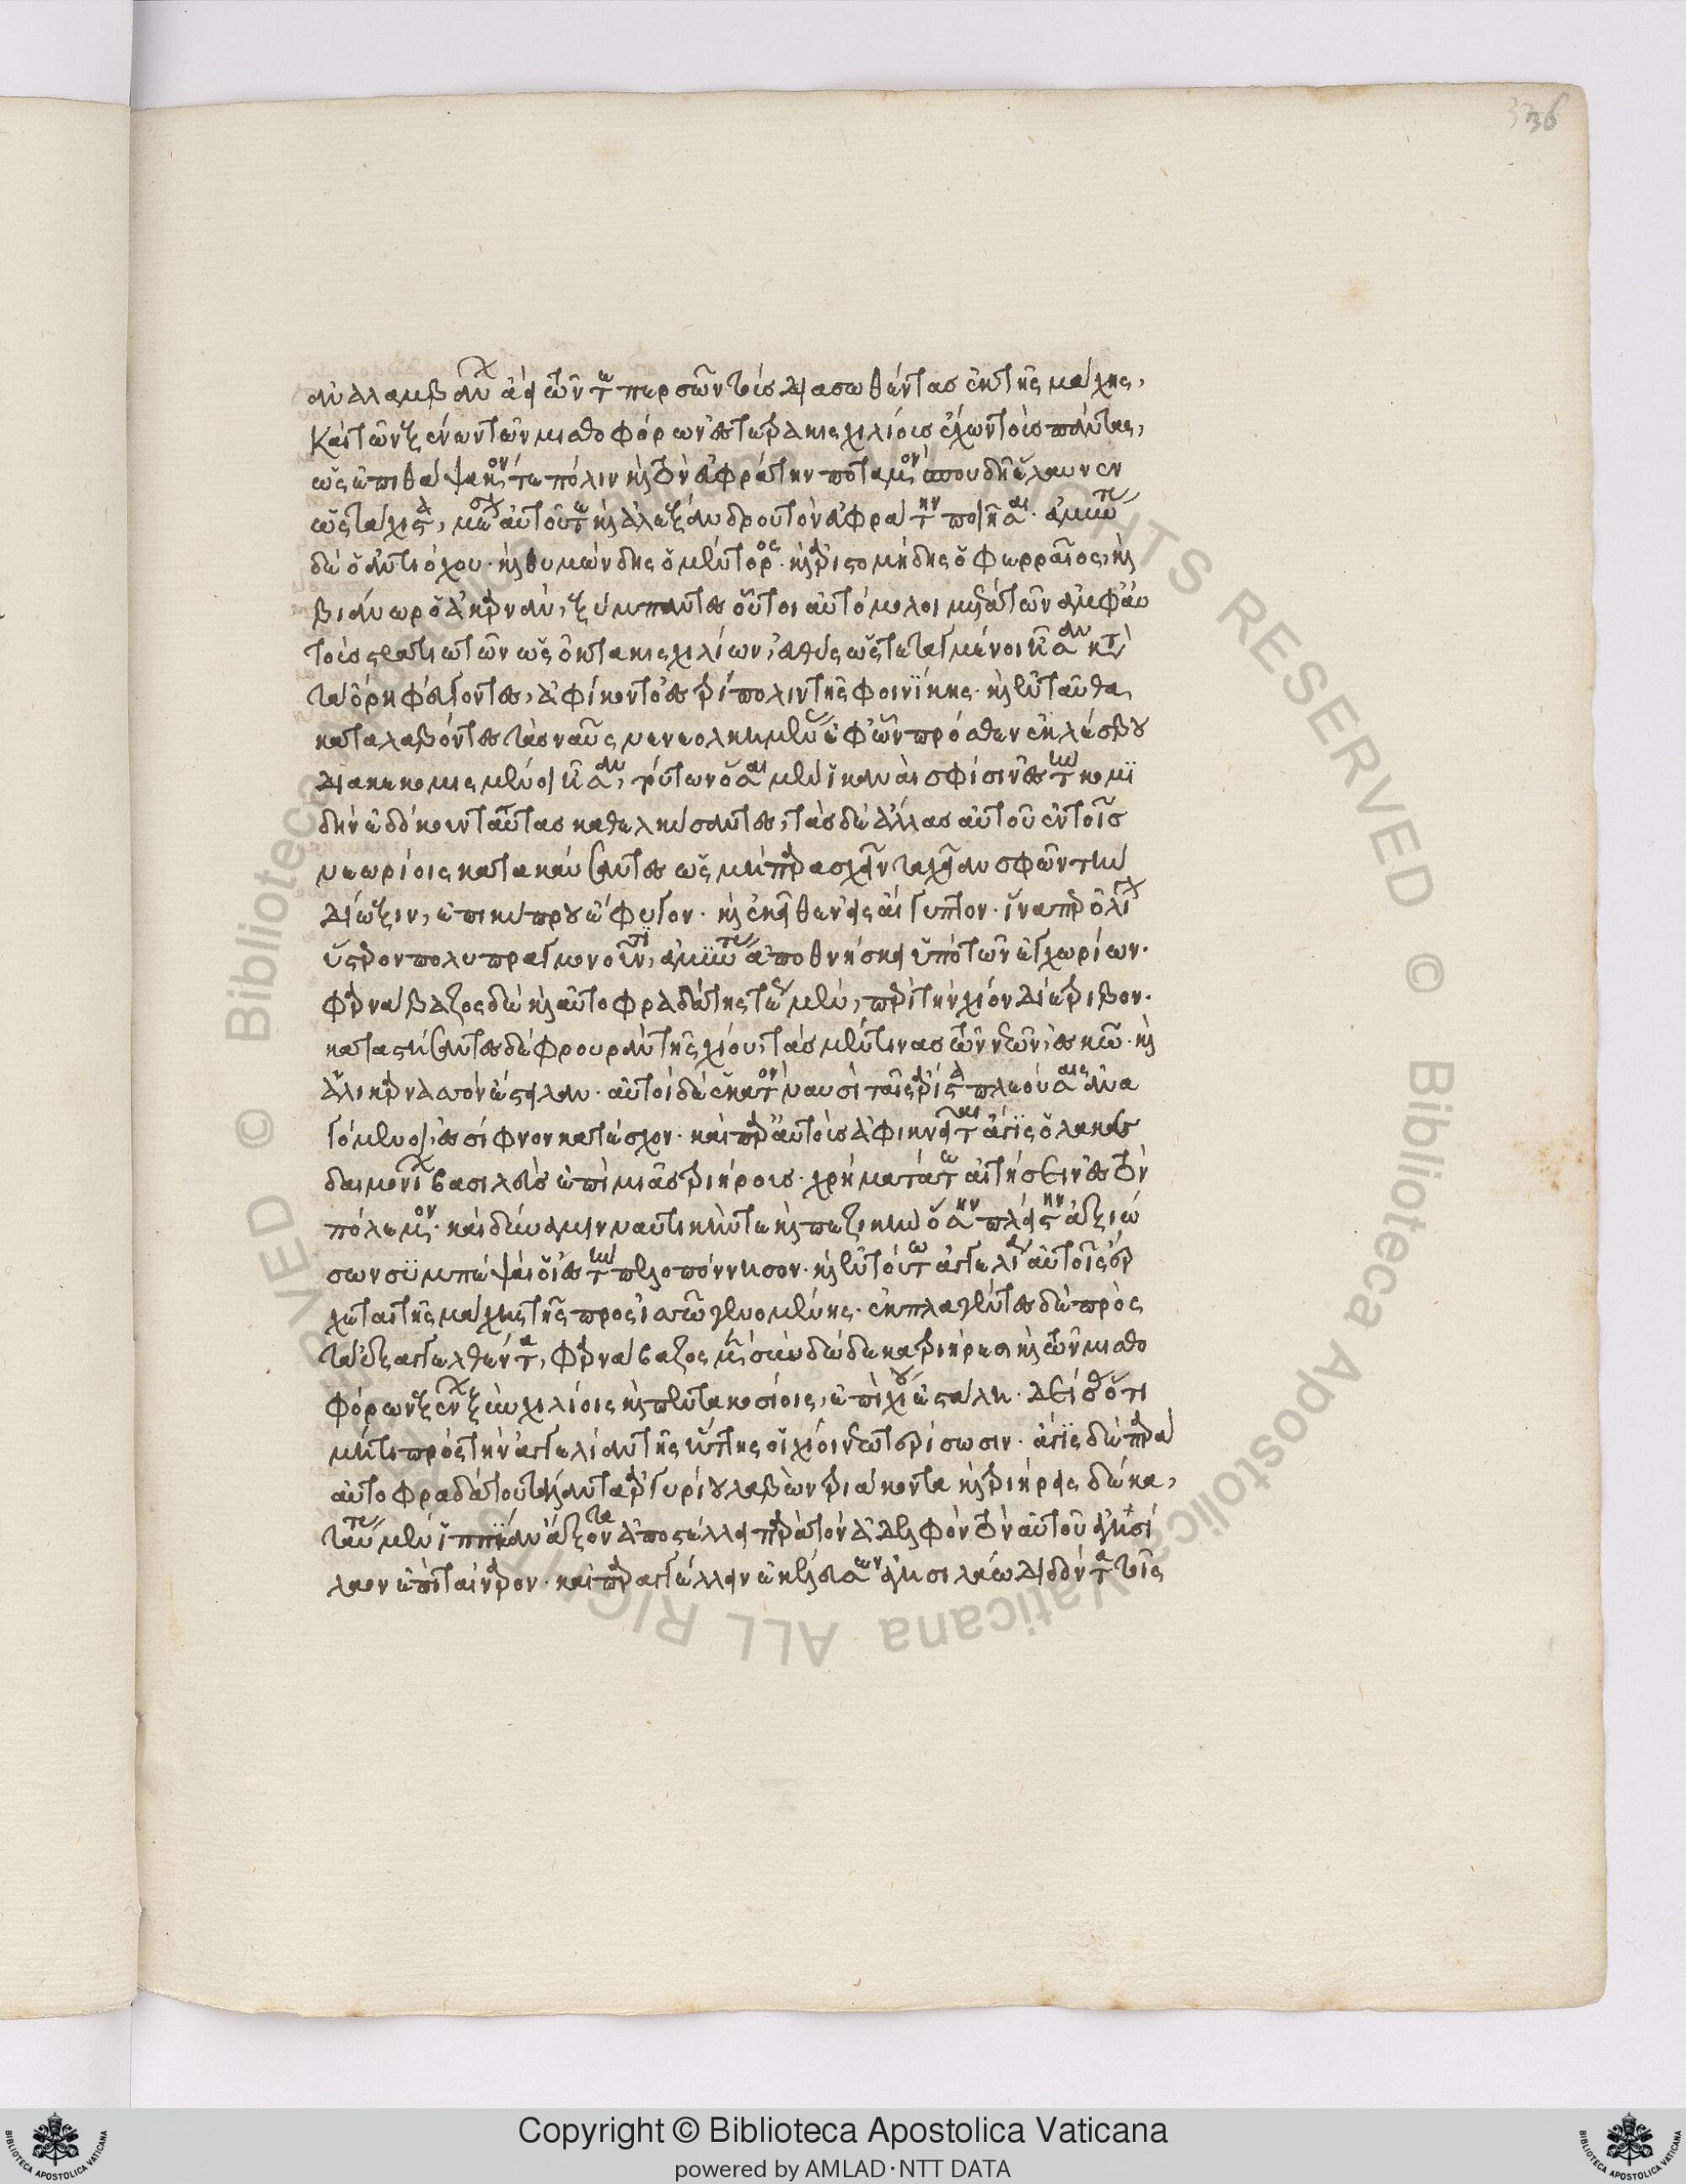 ἀναλαμβάνων ἀεὶ τῶν τε περσῶν τοὺς διασωθέντας ἐκ τῆς μάχης,
καὶ τῶν ξένων τῶν μισθοφόρων ἐς τετρακισχιλίους ἔχων τοὺς πάντας,
ὡς ἐπὶ θάψακόν τε πόλιν καὶ τὸν εὐφράτην ποταμὸν σπουδῇ ἤλαυνεν
ὡς τάχιστα, μέσον αὐτοῦ τε καὶ ἀλεξάνδρου τὸν εὐφράτην ποιῆσαι. ἀμύντας
δὲ ὁ ἀντιόχου. καὶ θυμώνδης ὁ μέντορος. καὶ ἀριστομήδης ὁ φερραῖος, καὶ
βιάνωρ ὁ ἀκαρνάν, ξύμπαντες οὗτοι αὐτόμολοι μετὰ τῶν ἀμφ' αὐ
τοὺς στρατιωτῶν ὡς ὀκτακισχιλίων, εὐθὺς ὡς τεταγμένοι ἦσαν κατὰ
τὰ ὄρη φεύγοντες, ἀφίκοντο ἐς τρίπολιν τῆς φοινίκης. καὶ ἐνταῦθα
καταλαβόντες τὰς ναῦς νενεολκημένας ἐφ' ὧν πρόσθεν ἐκ λέσβου
διακεκομισμένοι ἦσαν, τούτων ὅσαι μὲν ἱκαναὶ σφίσιν ἐς τὴν κομι
δὴν ἐδόκουν ταύτας καθελκύσαντες, τὰς δὲ ἄλλας αὐτοῦ ἐν τοῖς
νεωρίοις κατακαύσαντες ὡς μὴ παρασχεῖν ταχεῖαν σφῶν τὴν
δίωξιν, ἐπὶ κύπρου ἔφυγον. καὶ ἐκεῖθεν εἰς αἴγυπτον. ἵναπερ ὀλίγον
ὕστερον πολυπραγμονῶν τι, ἀμύντας ἀποθνήσκει ὑπὸ τῶν ἐγχωρίων.
φαρνάβαζος δὲ καὶ αὐτοφραδάτης τέως μὲν, περὶ τὴν χίον διέτριβον.
καταστήσαντες δὲ φρουρὰν τῆς χίου, τὰς μέν τινας τῶν νεῶν, ἐς κῶ. καὶ
ἁλικαρνασσὸν ἔστειλαν. αὐτοὶ δὲ ἑκατὸν ναυσὶ ταῖς ἄριστα πλεούσαις ἀνα
γόμενοι, ἐς σίφνον κατέσχον. καὶ παρ' αὐτοὺς ἀφικνεῖται ἄγις ὁ λακε
δαιμονίων βασιλεὺς ἐπὶ μιᾶς τριήρους. χρήματά τε αἰτήσων ἐς τὸν
πόλεμον. καὶ δύναμιν ναυτικήν τε καὶ πεζικὴν ὅσην πλείστην ἀξιώ
σων συμπέμψαι οἱ ἐς τὴν πελοπόννησον. καὶ ἐν τούτω ἀγγελία αὐτοῖς ἔρ
χεται τῆς μάχης τῆς πρὸς ἰσσῶ γενομένης. ἐκπλαγέντες δὲ πρὸς
τὰ ἐξαγγελθέντα, φαρνάβαζος μὲν σὺν δώδεκα τριήρεσι καὶ τῶν μισθο
φόρων ξένων ξὺν χιλίοις καὶ πεντακοσίοις, ἐπὶ χίου ἐστάλη. δείσας ὅτι
μήτι πρὸς τὴν ἀγγελίαν τῆς ἥττης οἱ χῖοι νεωτερίσωσιν. ἄγις δὲ παρὰ
αὐτοφραδάτου τάλαντα ἀργυρίου λαβὼν τριάκοντα καὶ τριήρεις δέκα,
ταύτας μὲν ἱππίαν ἄξοντα ἀποστέλλει παρὰ τὸν ἀδελφὸν τὸν αὐτοῦ ἀγησί
λαον ἐπὶ ταίναρον. καὶ παραγγέλλειν ἐκέλευσεν ἀγησιλάω διδόντα τοῖς